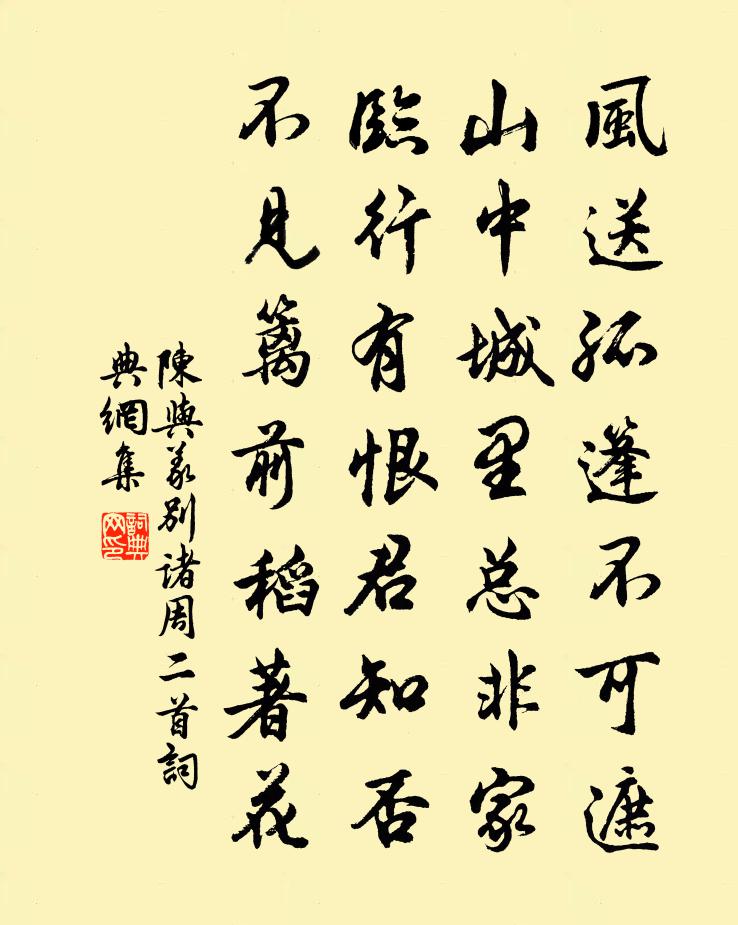 風送孤蓬不可遮
山中城里总非家
臨行有恨君知否
不見篱前稻著花
陳與義别诸周二首詞
典網集
詞典网印